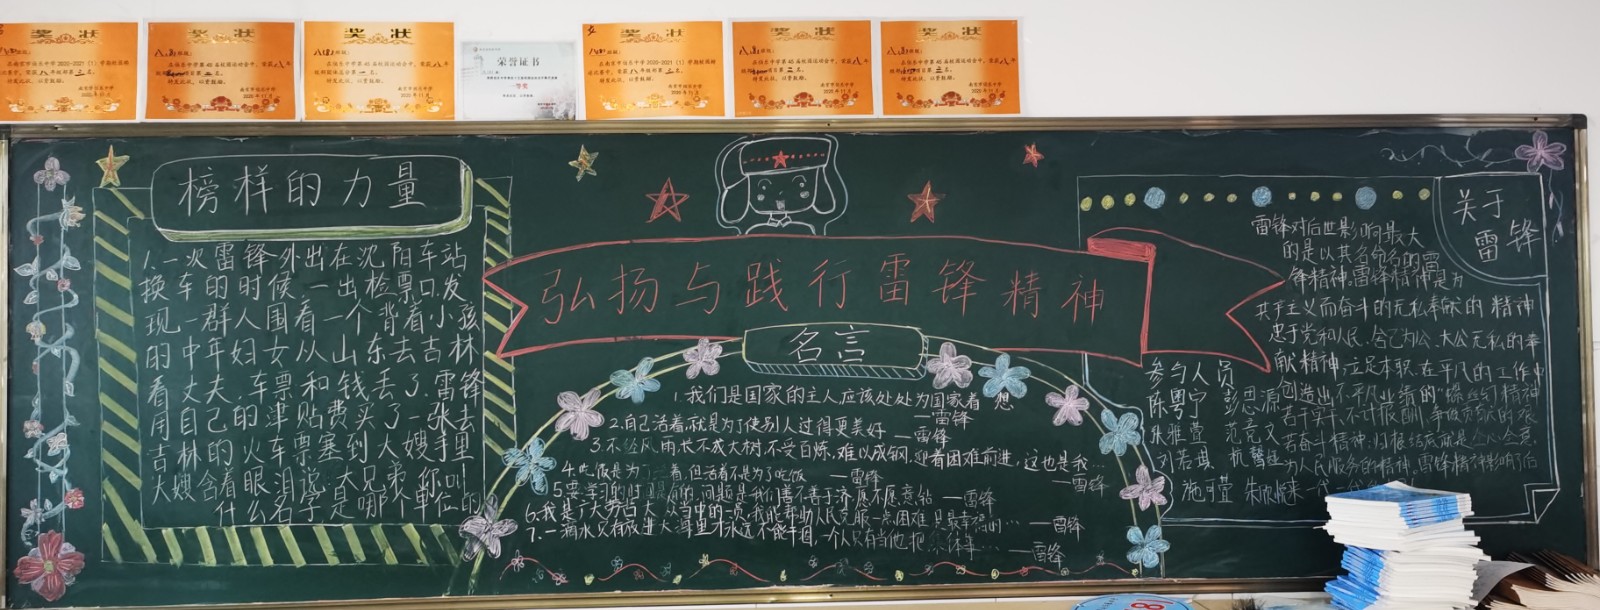 奖状
奖状
奖状
荣誉证书
一等奖
奖状
奖状
奖状
榜样的力量
1.一次雷锋外出在沈阳车站
换车的时候，一出检票口，发
现一群人围着一个背着小孩
的中年妇女，从山东去吉林
看丈夫，车票和钱丢了。雷锋
用自己的津贴费买了一张去
吉林的火车票塞到大嫂手里
大嫂含着眼泪说：大兄弟，你叫
什么名字，是哪个单位的
弘扬与践行雷锋精神
名言
1.我们是国家的主人，应该处处为国家着想
—雷锋
2.自己活着，就是为了使别人过得更美好 —雷锋
3.不经风雨，长不成大树，不受百炼，难以成钢。迎着困难前进，这也是我…
—雷锋
4.吃饭是为了活着，但活着不是为了吃饭 —雷锋
5.要学习的时间是有的，问题是我们善不善于挤，愿不愿意钻 —雷锋
6.我是广大劳苦大众当中的一员，我能帮助人民克服一点困难，是最幸福的… —雷锋
7.一滴水只有放进大海里才永远不能干涸，一个人只有当他把集体事… —雷锋
关于
雷锋
雷锋对后世影响最大
的是以其名命名的雷
锋精神。雷锋精神是为
共产主义而奋斗的无私奉献的精神
忠于党和人民、舍己为公、大公无私的奉
献精神；立足本职、在平凡的工作中
创造出不平凡业绩的“螺丝钉精神
苦干实干、不计报酬、争做贡献的艰
苦奋斗精神，归根结底就是全心全意
为人民服务的精神。雷锋精神影响了后
来一代一代
参与人员
陈粤宁 彭思源
朱雅萱 范竞文
刘若琪
施可萱 朱欣